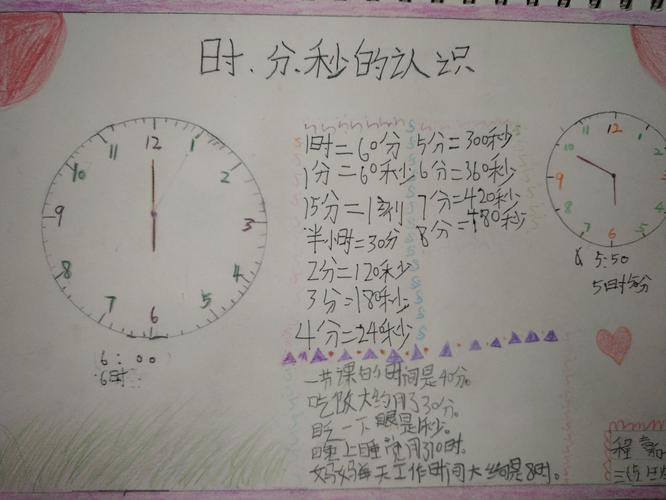 时、分、秒的认识
12
1
2
3
4
5
6
7
8
9
10
11
6:00
6时
1时=60分 5分=300秒
1分=60秒 6分=360秒
15分=1刻 7分=420秒
半小时=30分 8分=480秒
2分=120秒
3分=180秒
4分=240秒
12
1
2
3
4
5
6
7
8
9
10
11
5:50
5时
一节课的时间是40分。
吃饭大约用了30分。
眨一下眼是1秒。
晚上睡觉用了10时。
妈妈每天工作时间大约是8时。
程
三